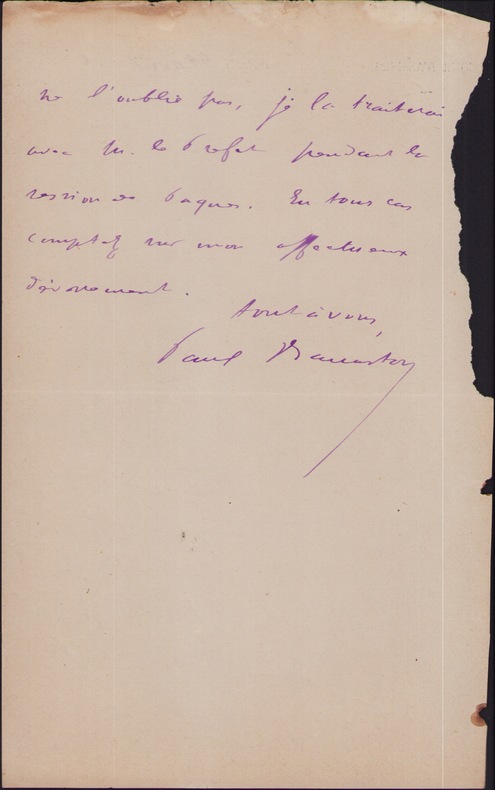 ne l'oublie pas, je la traiterai
avec M. le Préfet pendant la
session de Pâques. En tous cas
comptez sur mon affectueux
dévouement.
tout à vous,
Paul